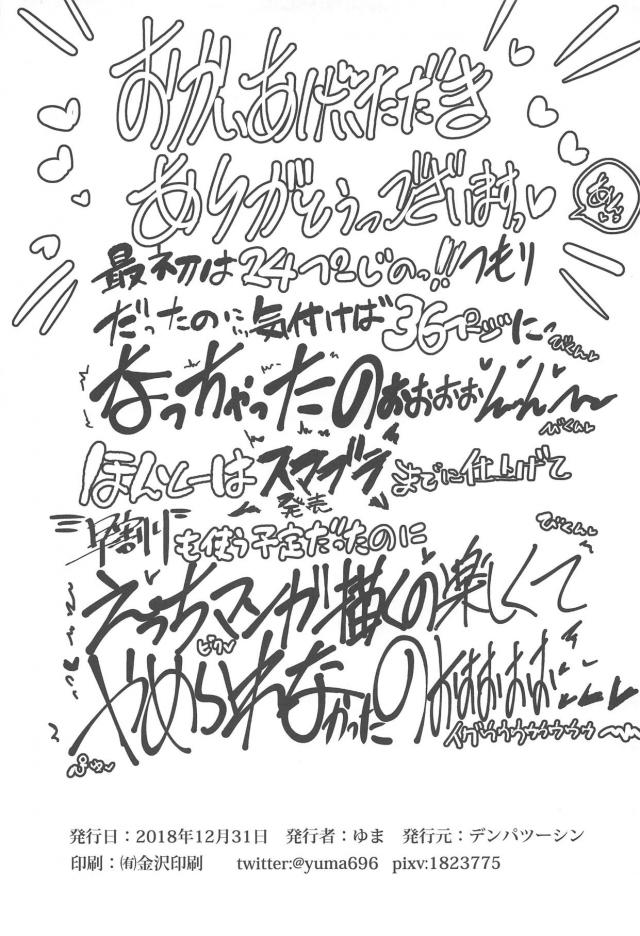 おかいあげいただき
ありがとうっございますっ♡
最初は24ページのっ!!つもり
だったのに気付けば36ページに
びくんっ
なっちゃったのぉぉぉぉんん〜
びくんっ
ほんとーはスマブラまでに仕上げて
発売
早割りも使う予定だったのに
びくんっ
えっちマンガ描くの楽しくて
ビクッ
やめられなかったのおほおおお
イグゥゥゥゥゥゥゥ
発行日：2018年12月31日 発行者：ゆま 発行元：デンパツーシン
印刷：㈲金沢印刷 twitter:@yuma696 pixv:1823775